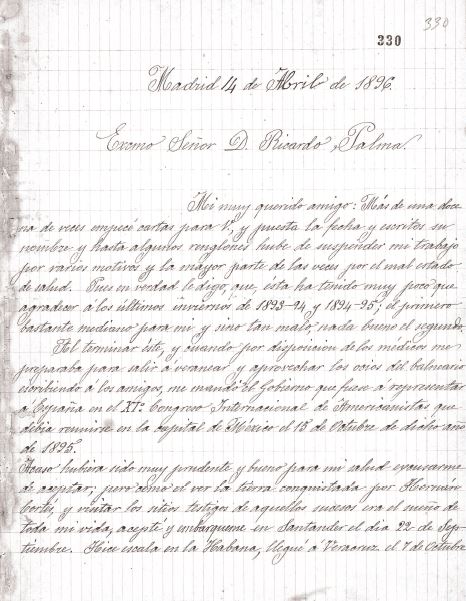 330
330
Madrid 14 de Abril de 1896.
Excmo Señor D. Ricardo Palma.
Mi muy querido amigo: Más de una doce
na de veces empecé cartas para V., y puesta la fecha y escritos su
nombre y hasta algunos renglones hube de suspender mi trabajo
por varios motivos y la mayor parte de las veces por el mal estado
de salud. Pues en verdad le digo, que, esta ha tenido muy poco que
agradecer á los últimos inviernos de 1893-94 y 1894-95; el primero
bastante mediano para mi y sino tan malo, nada bueno el segundo.
Al terminar éste, y cuando por disposicion de los médicos me
preparaba para salir á veranear y aprovechar los ocios del balneario
escribiendo á los amigos, me mandó el Gobierno que fuese á representar
á España en el XI.º Congreso Internacional de Americanistas que
debia reunirse en la capital de México el 15 de Octubre de dicho año
de 1895.
Acaso hubiera sido muy prudente y bueno para mi salud excusarme
de aceptar; pero como el ver la tierra conquistada por Hernán
Cortés, y visitar los sitios testigos de aquellos sucesos era el sueño de
toda mi vida, acepté y embarquéme en Santander el dia 22 de Sep-
tiembre. Hice escala en la Habana, llegué á Veracruz el 7 de Octubre